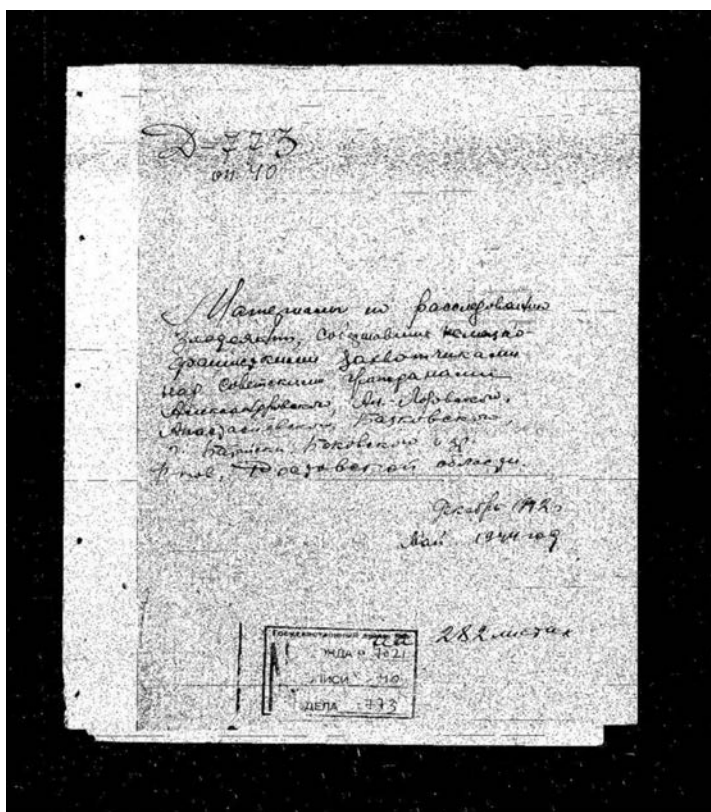 Д-773
оп 40
Материалы по расследованию
злодеяний, совершавшие немецко-
фашистскими захватчиками
над советскими гражданами
Александровского, Ал.-Лозовского,
Анастасиевского, Базковского,
г. Батайска, Боковского и др.
Ростовской области.
Декабрь 1942
Май 1944 год
282 листах
Государственный архив
ФОНДА № 7021
ОПИСИ 40
ДЕЛА 773